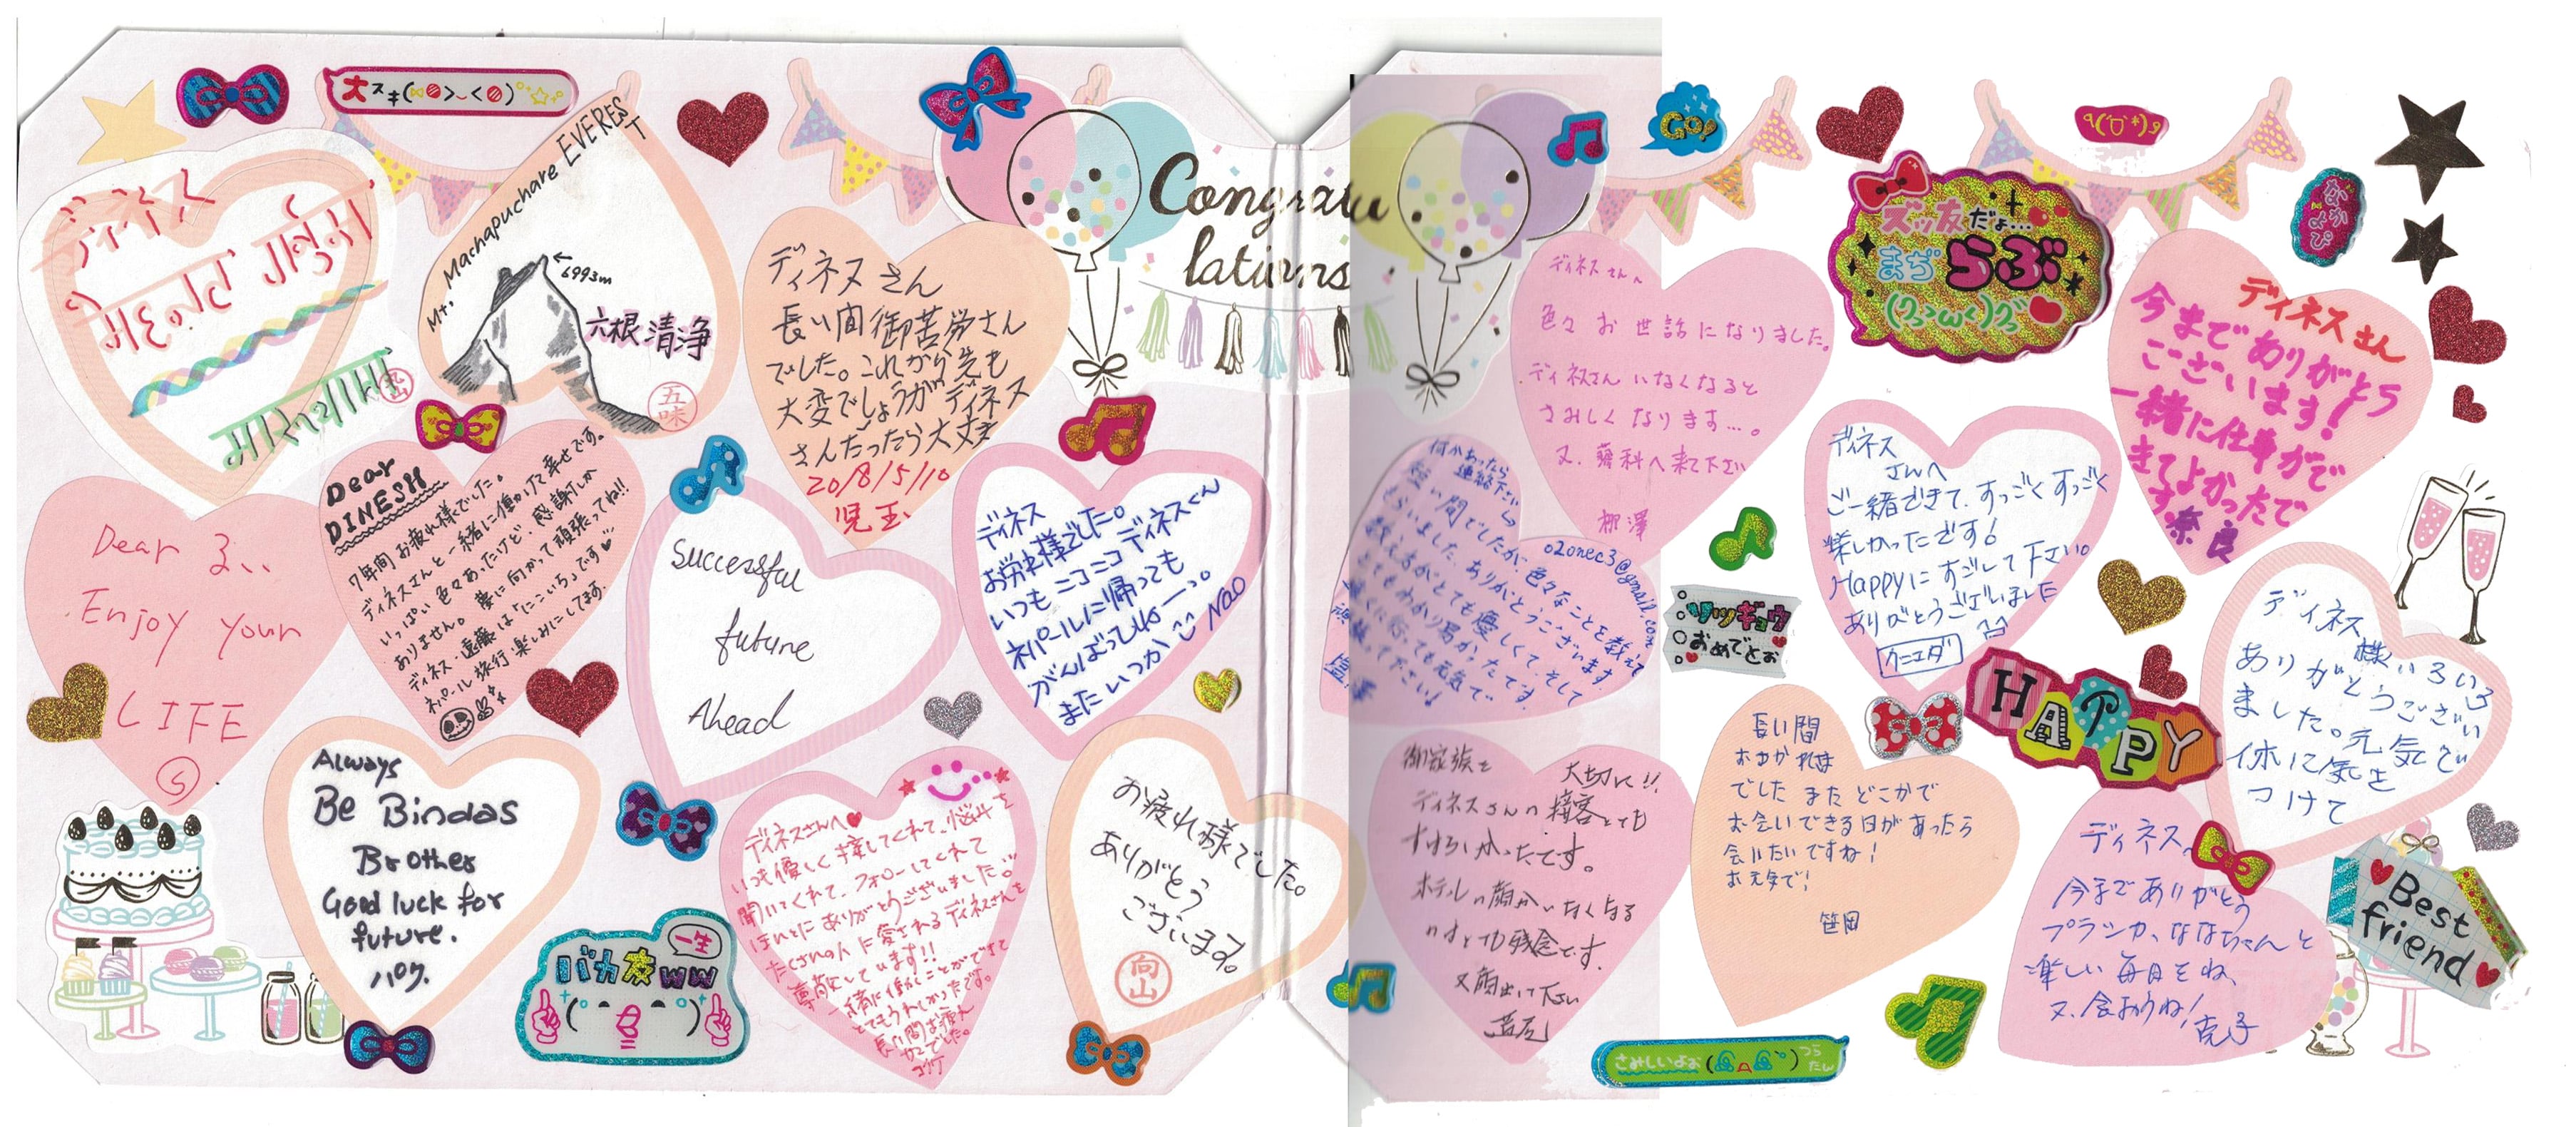 大スキ
ディネス
Mt. Machapuchare EVEREST
6993m
六根清浄
五味
ディネスさん
長い間御苦労さん
でした。これから先も
大変でしょうがディネス
さんだったら大丈夫
2018/5/10
児玉
Congratu
lations
Dear
DINESH
7年間お疲れ様でした。
ディネスさんと一緒に働けて幸せです。
いっぱい色々あったけど、感謝しか
ありません。夢に向かって頑張ってね!!
ディネス・遠藤は
ネパール旅行楽しみにしてます。
Dear
Enjoy your
LIFE
Successful
future
Ahead
ディネス
お労れ様でした。
いつもニコニコディネスくん
ネパールに帰っても
がんばってね
またいつか
Nao
Always
Be Bindas
Brother
Good luck for
future.
一生
バカ友ww
ディネスさんへ
いつも優しく接してくれて、悩みを
聞いてくれて、フォローしてくれて
ほんとにありがとうございました。
たくさんの人に愛されるディネスさんを
尊敬しています!!
一緒に働くことができて
とてもうれしかったです。
長い間お疲れ
でした。
お疲れ様でした。
ありがとう
ございます。
向山
GO!
ディネスさんへ
色々お世話になりました。
ディネスさんいなくなると
さみしくなります…。
又、蓼科へ来て下さい
柳澤
何かあったら
連絡下さい
o2onec3@gmail.com
短い間でしたが、色々なことを教えて
もらいました。ありがとうございます。
教え方がとても優しくて、そして
とてもわかり易かったです。
遠くに行っても元気で
ズッ友だょ…
まぢらぶ
なかよぴ
ディネスさん
今までありがとう
ございます!
一緒に仕事がで
きてよかったで
す。奈良
ディネス
さんへ
ご一緒できて、すっごくすっごく
楽しかったです!
Happyにすごして下さい。
ありがとうございました
クニエダ
ソツギョウ
おめでとぉ
HAPPY
ディネス様いろいろ
ありがとうござい
ました。元気で
体に気を
つけて
御家族を
大切に!!
ディネスさんの接客とても
すばらしかったです。
ホテルの顔がいなくなる
のはとても残念です。
又顔出して下さい
長い間
おつかれさま
でした またどこかで
お会いできる日があったら
会いたいですね!
お元気で!
笹岡
ディネス
今までありがとう
ブランカ、ななちゃんと
楽しい毎日をね、
又、会おうね!
克子
Best
friend
さみしいよぉ
つら
たん